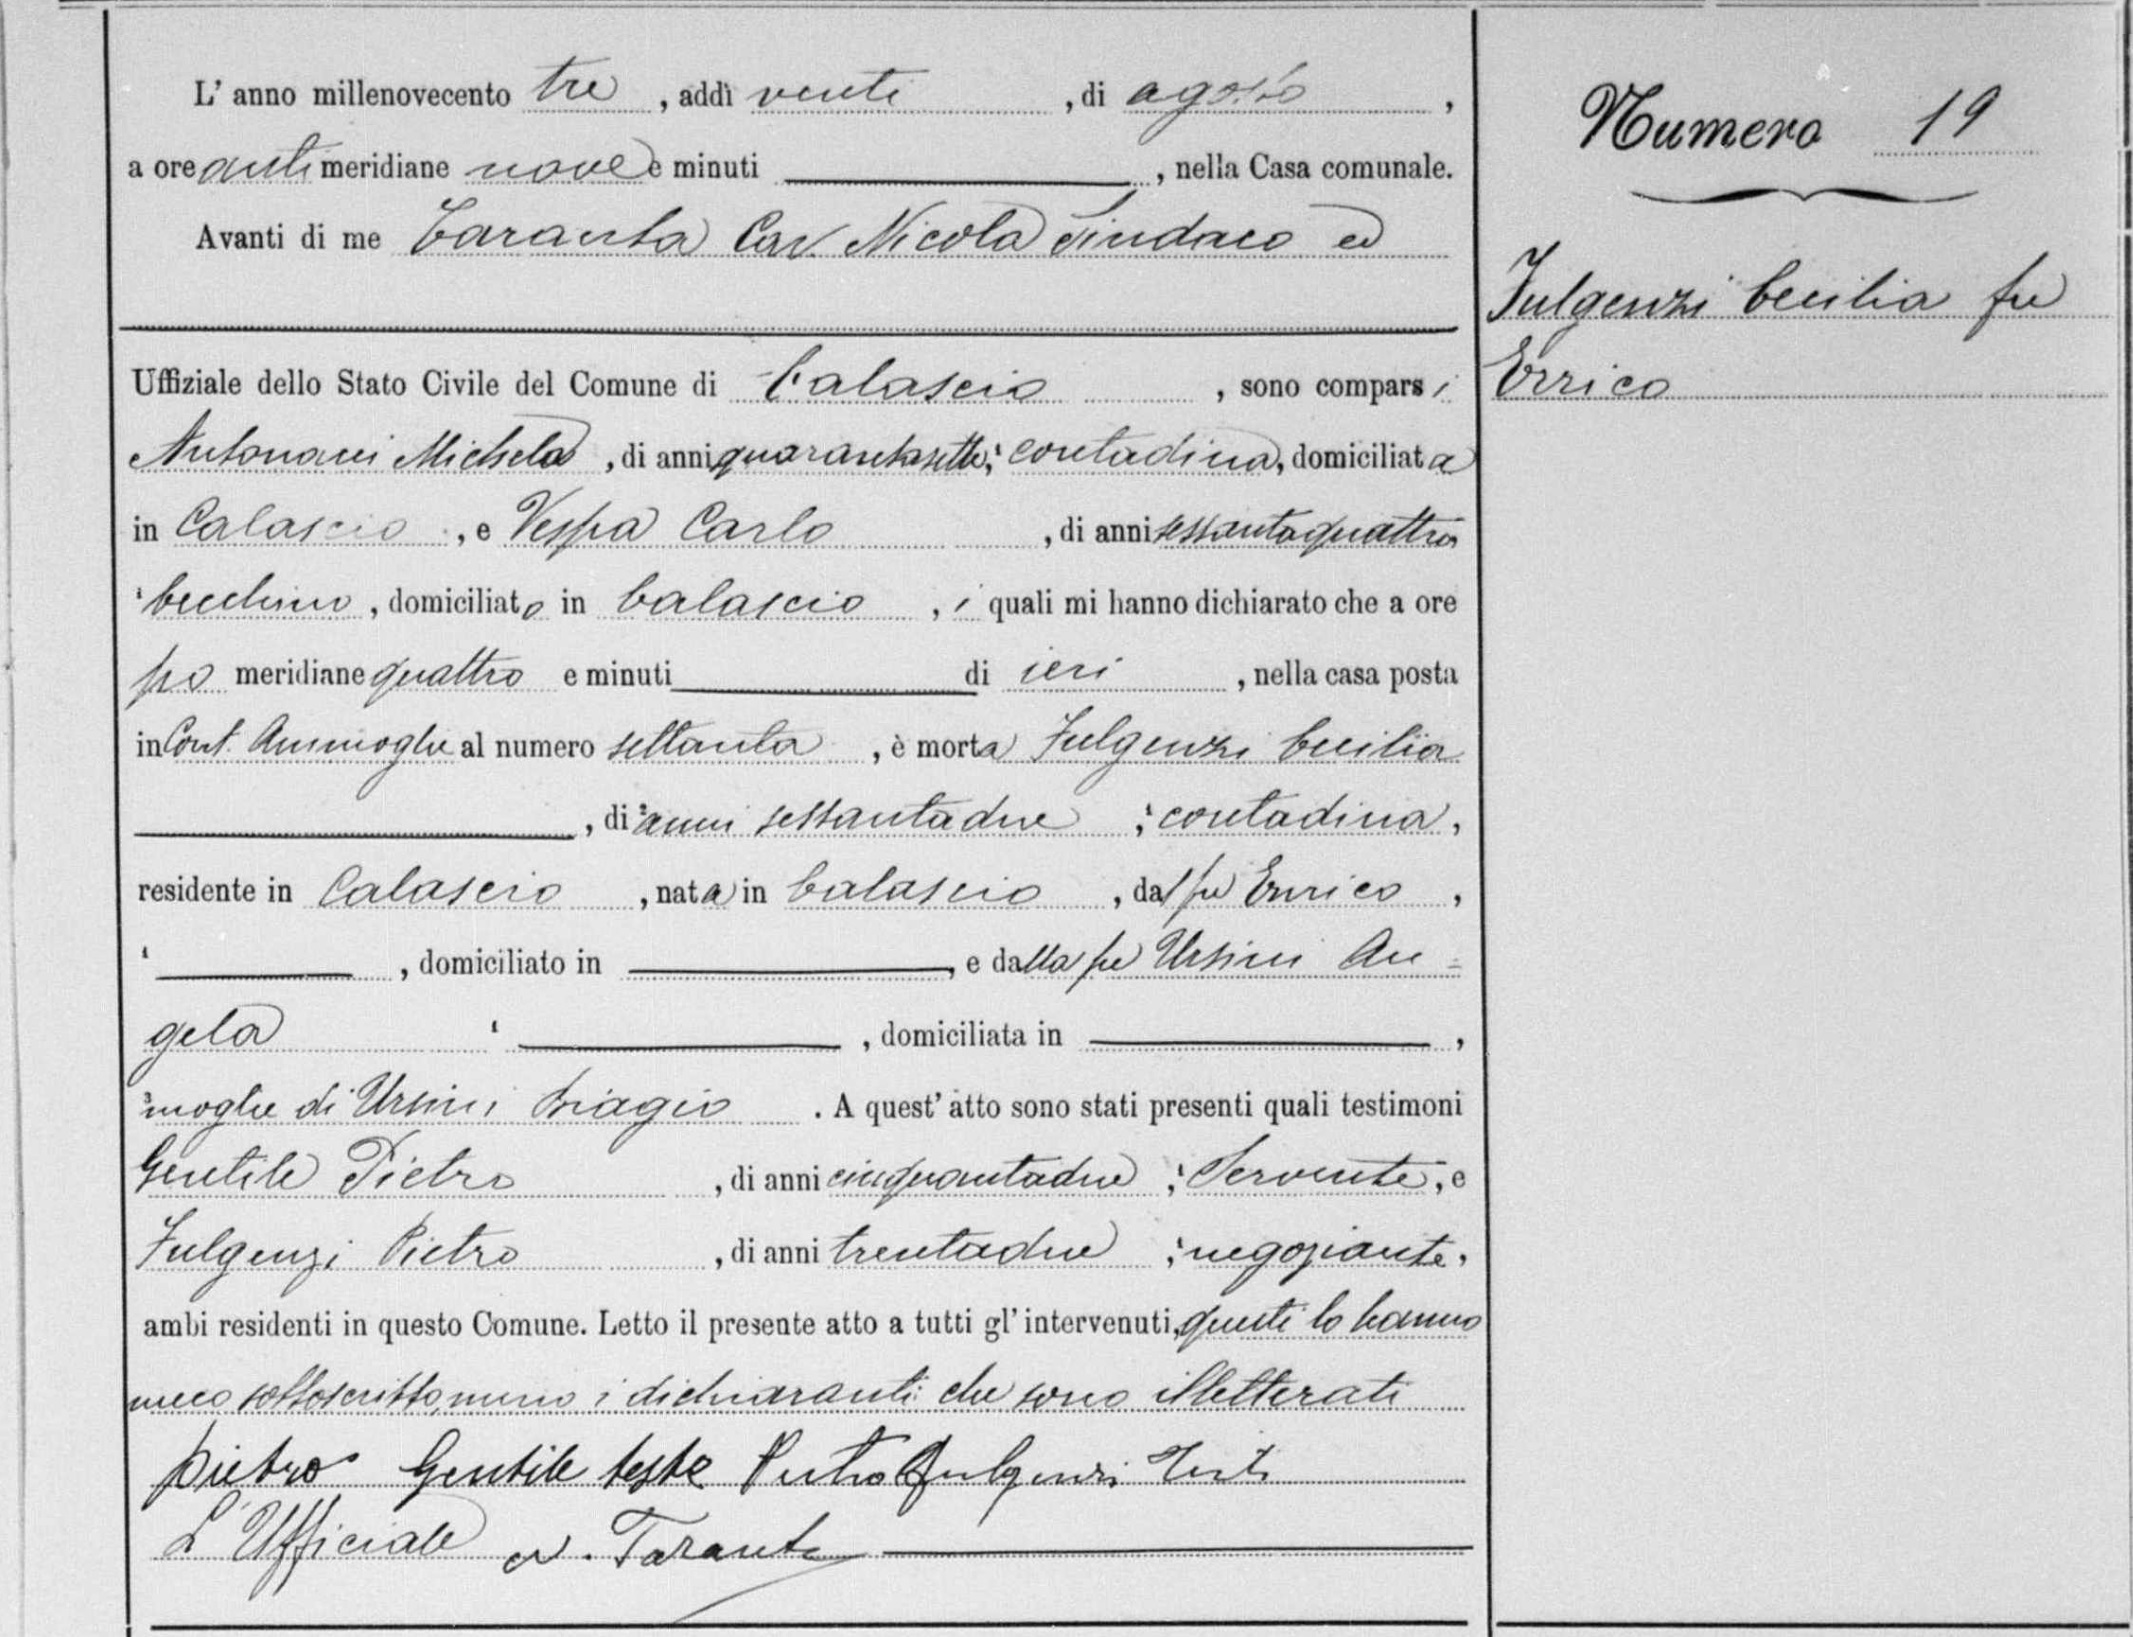 L' anno millenovecento tre, addì venti, di agosto,
a ore antimeridiane nove e minuti, nella Casa comunale.
Avanti di me Taranta Cav. Nicola Sindaco ed
Uffiziale dello Stato Civile del Comune di Calascio, sono comparsi
Antonacci Michela, di anni quarantasette, contadina, domiciliata
in Calascio, e Vespa Carlo, di anni sessantaquattro
becchino, domiciliato in Calascio, i quali mi hanno dichiarato che a ore
po meridiane quattro e minuti di ieri, nella casa posta
in Cont. al numero settanta, è morta Fulgenzi Cecilia
, di anni sessantadue, contadina,
residente in Calascio, nata in Calascio, dal fu Enrico,
, domiciliato in, e dalla fu Ursini An=
gela, domiciliata in,
moglie di Ursini Biagio. A quest' atto sono stati presenti quali testimoni
Gentile Pietro, di anni cinquantadue, Servente, e
Fulgenzi Pietro, di anni trentadue, negoziante,
ambi residenti in questo Comune. Letto il presente atto a tutti gl' intervenuti, questi lo hanno
meco sottoscritto, meno i dichiaranti che sono illetterati
Pietro Gentile teste Pietro Fulgenzi Teste
L' Ufficiale N. Taranta
Numero 19
Fulgenzi Cecilia fu
Errico